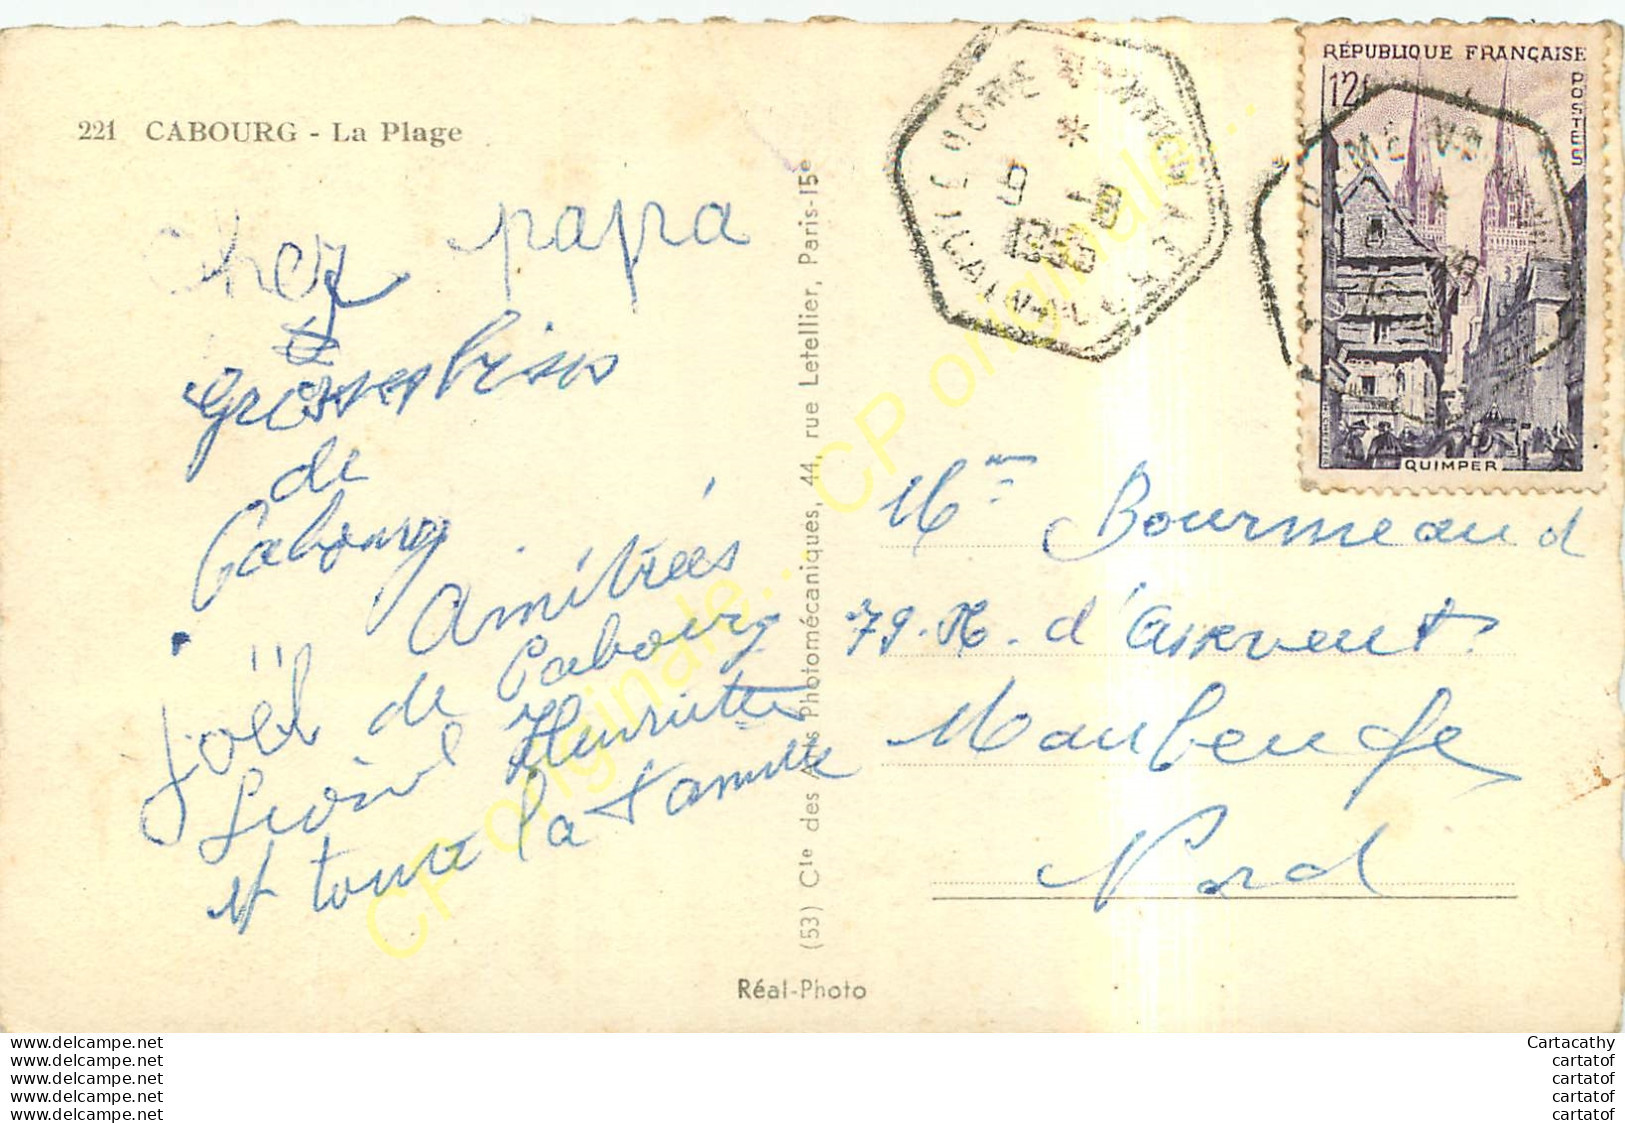 221 CABOURG - La Plage
Cher papa
grosses bises
de
Cabourg
Amitiés
Joël de Cabourg
Henriette
et toute la famille
(53) Cie des Arts Photomécaniques, 44, rue Letellier, Paris-15e
Réal-Photo
RÉPUBLIQUE FRANÇAISE
12f
POSTES
QUIMPER
Mme Bourmeaud
79. R. d'Airvent.
Maubeuge
Nord
CP originale...
CP originale...
CP originale...
www.delcampe.net
www.delcampe.net
www.delcampe.net
www.delcampe.net
www.delcampe.net
Cartacathy
cartatof
cartatof
cartatof
cartatof